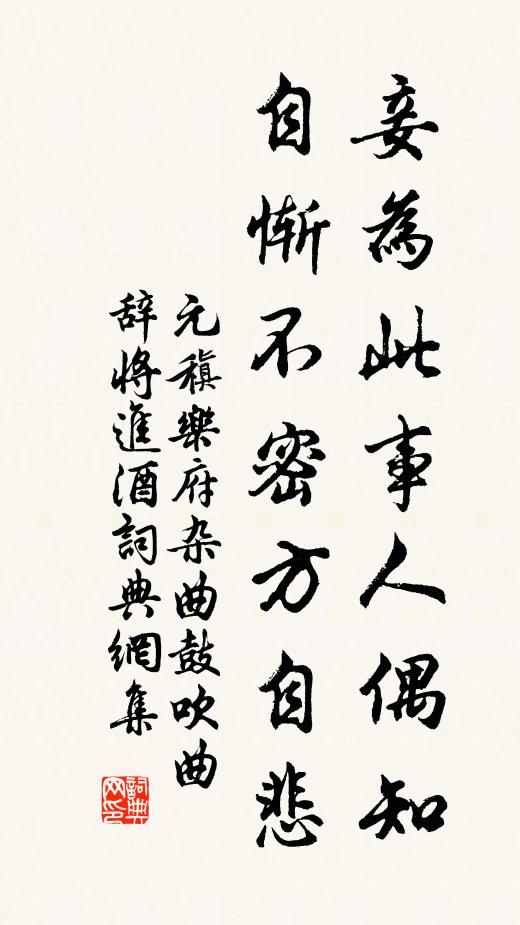 妾為此事人偶知
自慚不密方自悲
元稹樂府杂曲鼓吹曲
辞將進酒詞典網集
詞典
网印